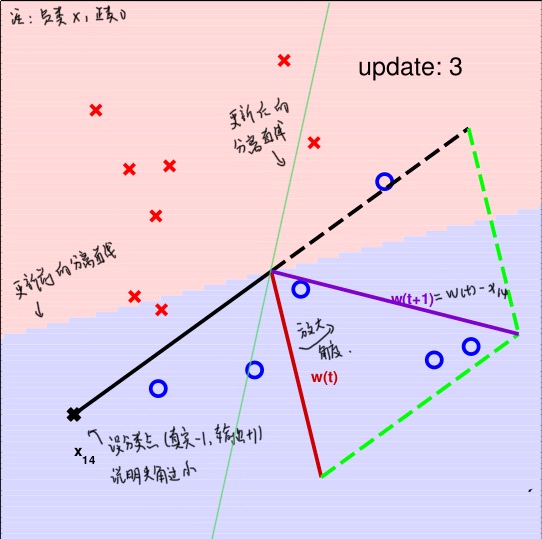 注：负类x，正类o
update: 3
更新后的
分离直线
更新前的分离直线
w(t+1)=w(t)-x14
放大
角度.
w(t)
x14
误分类点（真实-1，输出+1）
说明夹角过小